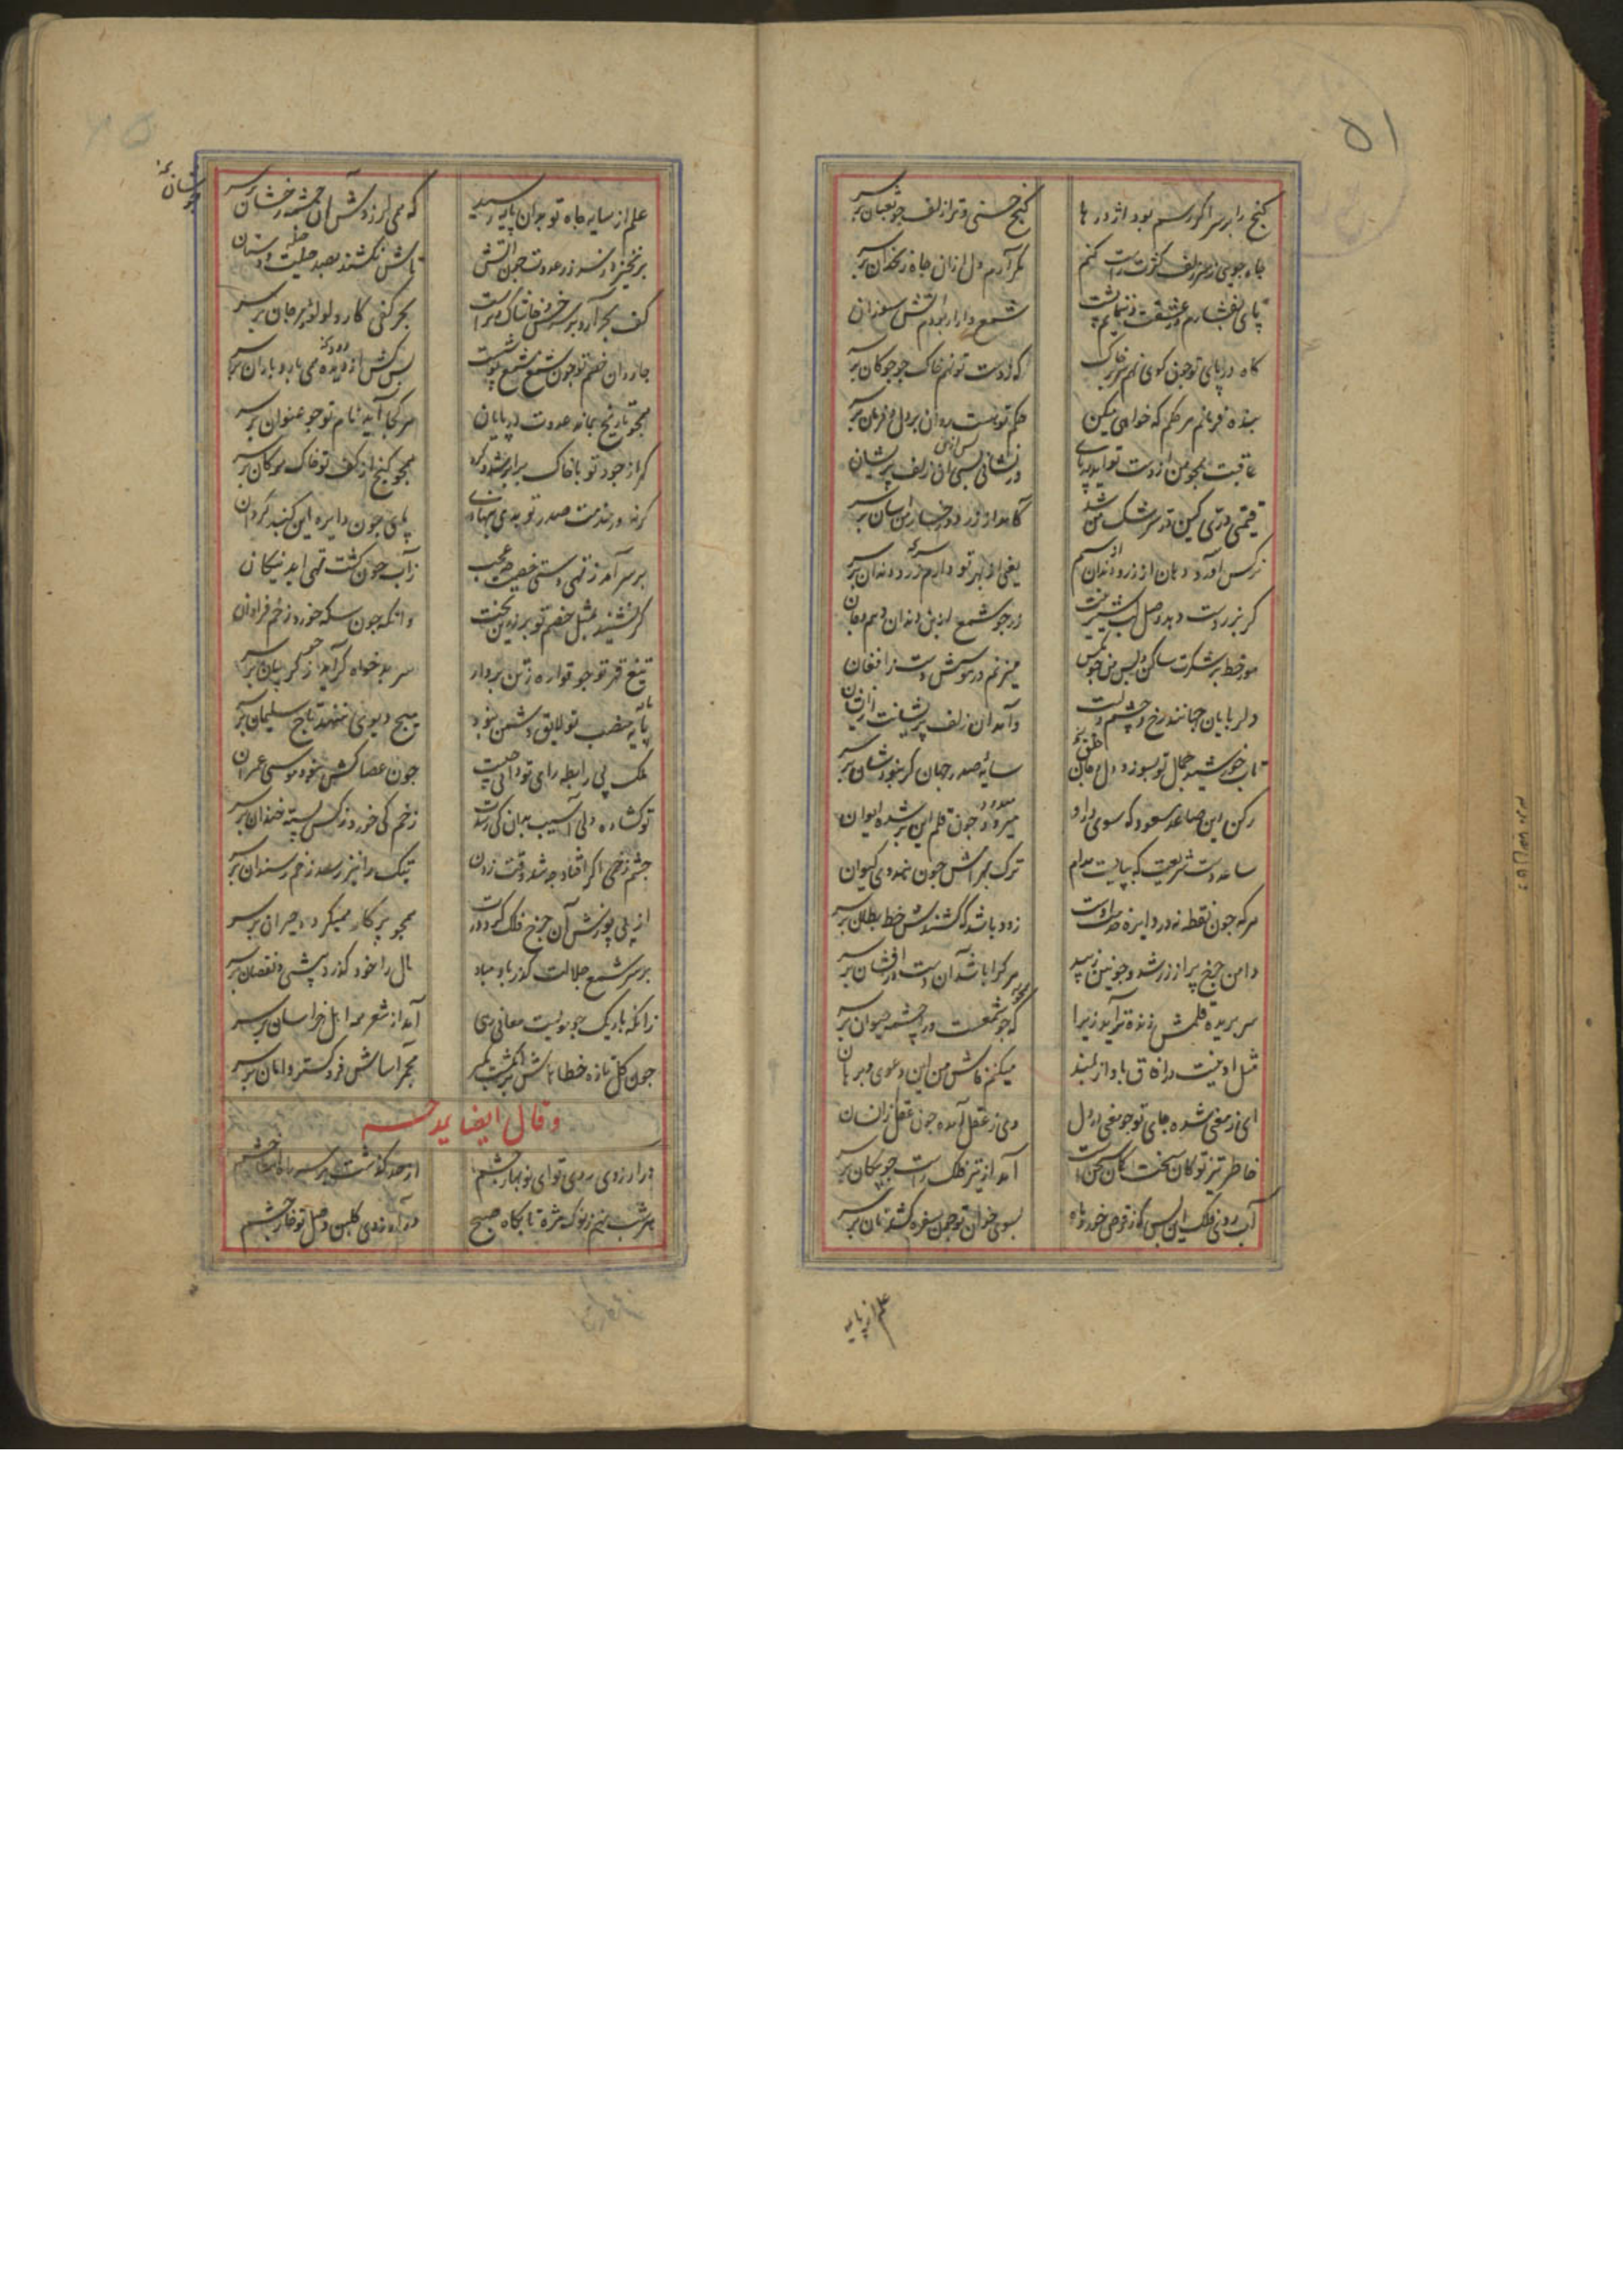 ۵۱
کنج را بر سر اگر رسم بود اژدرها
کنج حسنی و ترا زلف چو ثعبان بر سر
چاه جویی از سر زلف کژت راست کنم
مگر آرم دل ازان چاه زنخدان بر سر
پای بفشارم و عشقت ننمایم پشت
شمع وار ار بودم آتش سوزان بر سر
کاه در پای تو چون کوی نهم سر بر خاک
که ز دست تو نهم خاک چو چوکان بر سر
بنده فرمانم هر حکم که خواهی میکن
حکم تو هست روان بر دل و فرمان بر سر
عاقبت همچو من از دست تو آید در پای
قیمتی درّی کین قدر سرشک من شد
کامد از زر دو رخسار من آسان بر سر
نرکس آورد دهان از زر و دندان از سیم
یعنی از بهر تو دارم زر و دندان بر سر
کر بزر دست دهد وصل لب شیرینت
زر چو شمع از بن دندان دهم و جان بر سر
مور خط بر شکرت ساکن و بس من چو مکس
میزنم در هوسش دست ز افغان بر سر
دلربایان جهانند رخ و چشم و لبت
وآمد آن زلف پریشانت ازیشان بر سر
تاب خورشید جمال تو بسوزد دل و جان
سایهٔ صدر جهان کر نبود شان بر سر
رکن دین صاعد مسعود که سوی در او
میرود چون قلم این بر شده ایوان بر سر
ساعد دست شریعت که بپایست مدام
ترک بهرامش چون هندوی کیوان بر سر
هر که چون نقطه نه در دایره خدمت اوست
زود باشد که کشندش خط بطلان بر سر
دامن چرخ پر از زر شد و چونین زیبد
هر کرا باشد آن دست درافشان بر سر
سر بریده قلمش زنده برآید زیرا
که چو شمعست ورا چشمه حیوان بر سر
مثل او نیست در آفاق باواز بلند
میکنم فاش من این دعوی و برهان بر سر
ای ز معنی شده جای تو چو معنی در دل
وی ز عقل آمده چون عقل ز انسان بر سر
خاطر تیز تو کان سخت کمان سخن است
آمد از تیر فلک راست چو پیکان بر سر
آب روی فلک این بس که ز قرص خور و ماه
بسوی خوان تو چون سفره کشد نان بر سر
علم از پایه
علم از سایه جاه تو بدان پایه رسید
که می لرزدش آن چشمه رخشان بر سر
برنخیزد ز سر زر عدوت چون آتش
تاش نکشند بصد حیلت و دستان
کف بحر آرد بر سر خس و خاشاک و تراست
بحر کفی کارد لولو و مرجان بر سر
جاودان خصم تو چون شمع نشسته
بس کش از دیده می بارد باران بر سر
همچو تاریخ بماند عدوت در پایان
هر کجا آید نام تو چو عنوان بر سر
کر ز جود تو با خاک برابر شد و کرد
همچو کنج از کف تو خاک سر کان بر سر
کر نه در خدمت صدر تو بدی ننهادی
پای چون دایره این کنبد کردان
بر سر آمد ز تهی دستی خصمت چه عجب
زآب چون کشت تهی آید پنکان
کر نشیند بمثل خصم تو بر زرین تخت
وانکه چون سکه خورد زخم فراوان
تیغ قهر تو چو قواره ز تن بردارد
سر بدخواه کر آید ز کریبان بر سر
پایه منصب تو لایق دشمن نبود
هیچ دیوی ننهد تاج سلیمان بر سر
ملک بی رابطه رای تو
چون عصا کش نبود موسی عمران
تو کشاده دلی آسیب بدان کی رسدت
زخم کی خورد ز کس پسته خندان بر سر
چشم زخمی اکر افتاد چه شد وقت زدن
تیک را نیز رسد زخم ز سندان بر سر
از پی پوزش آن چرخ فلک کرد دوار
همچو پرکار همیکردد حیران بر سر
بر سر شمع جلالت کذر باد مباد
مال را خود کذرد بیشی و نقصان بر سر
زانکه باریک چو مویست معانی رهی
آمد از شعر همه اهل خراسان بر سر
چون کل تازه خطاهاش بر انکشت مکیر
مجمر آساش فرو کستر دامان بر سر
وقال ایضا یمدحه
در ارزوی روی تو ای نوبهار چشم
هر شب نهم ز نوک مژه تا بکاه صبح
در آرزوی کلبن وصل تو خار چشم